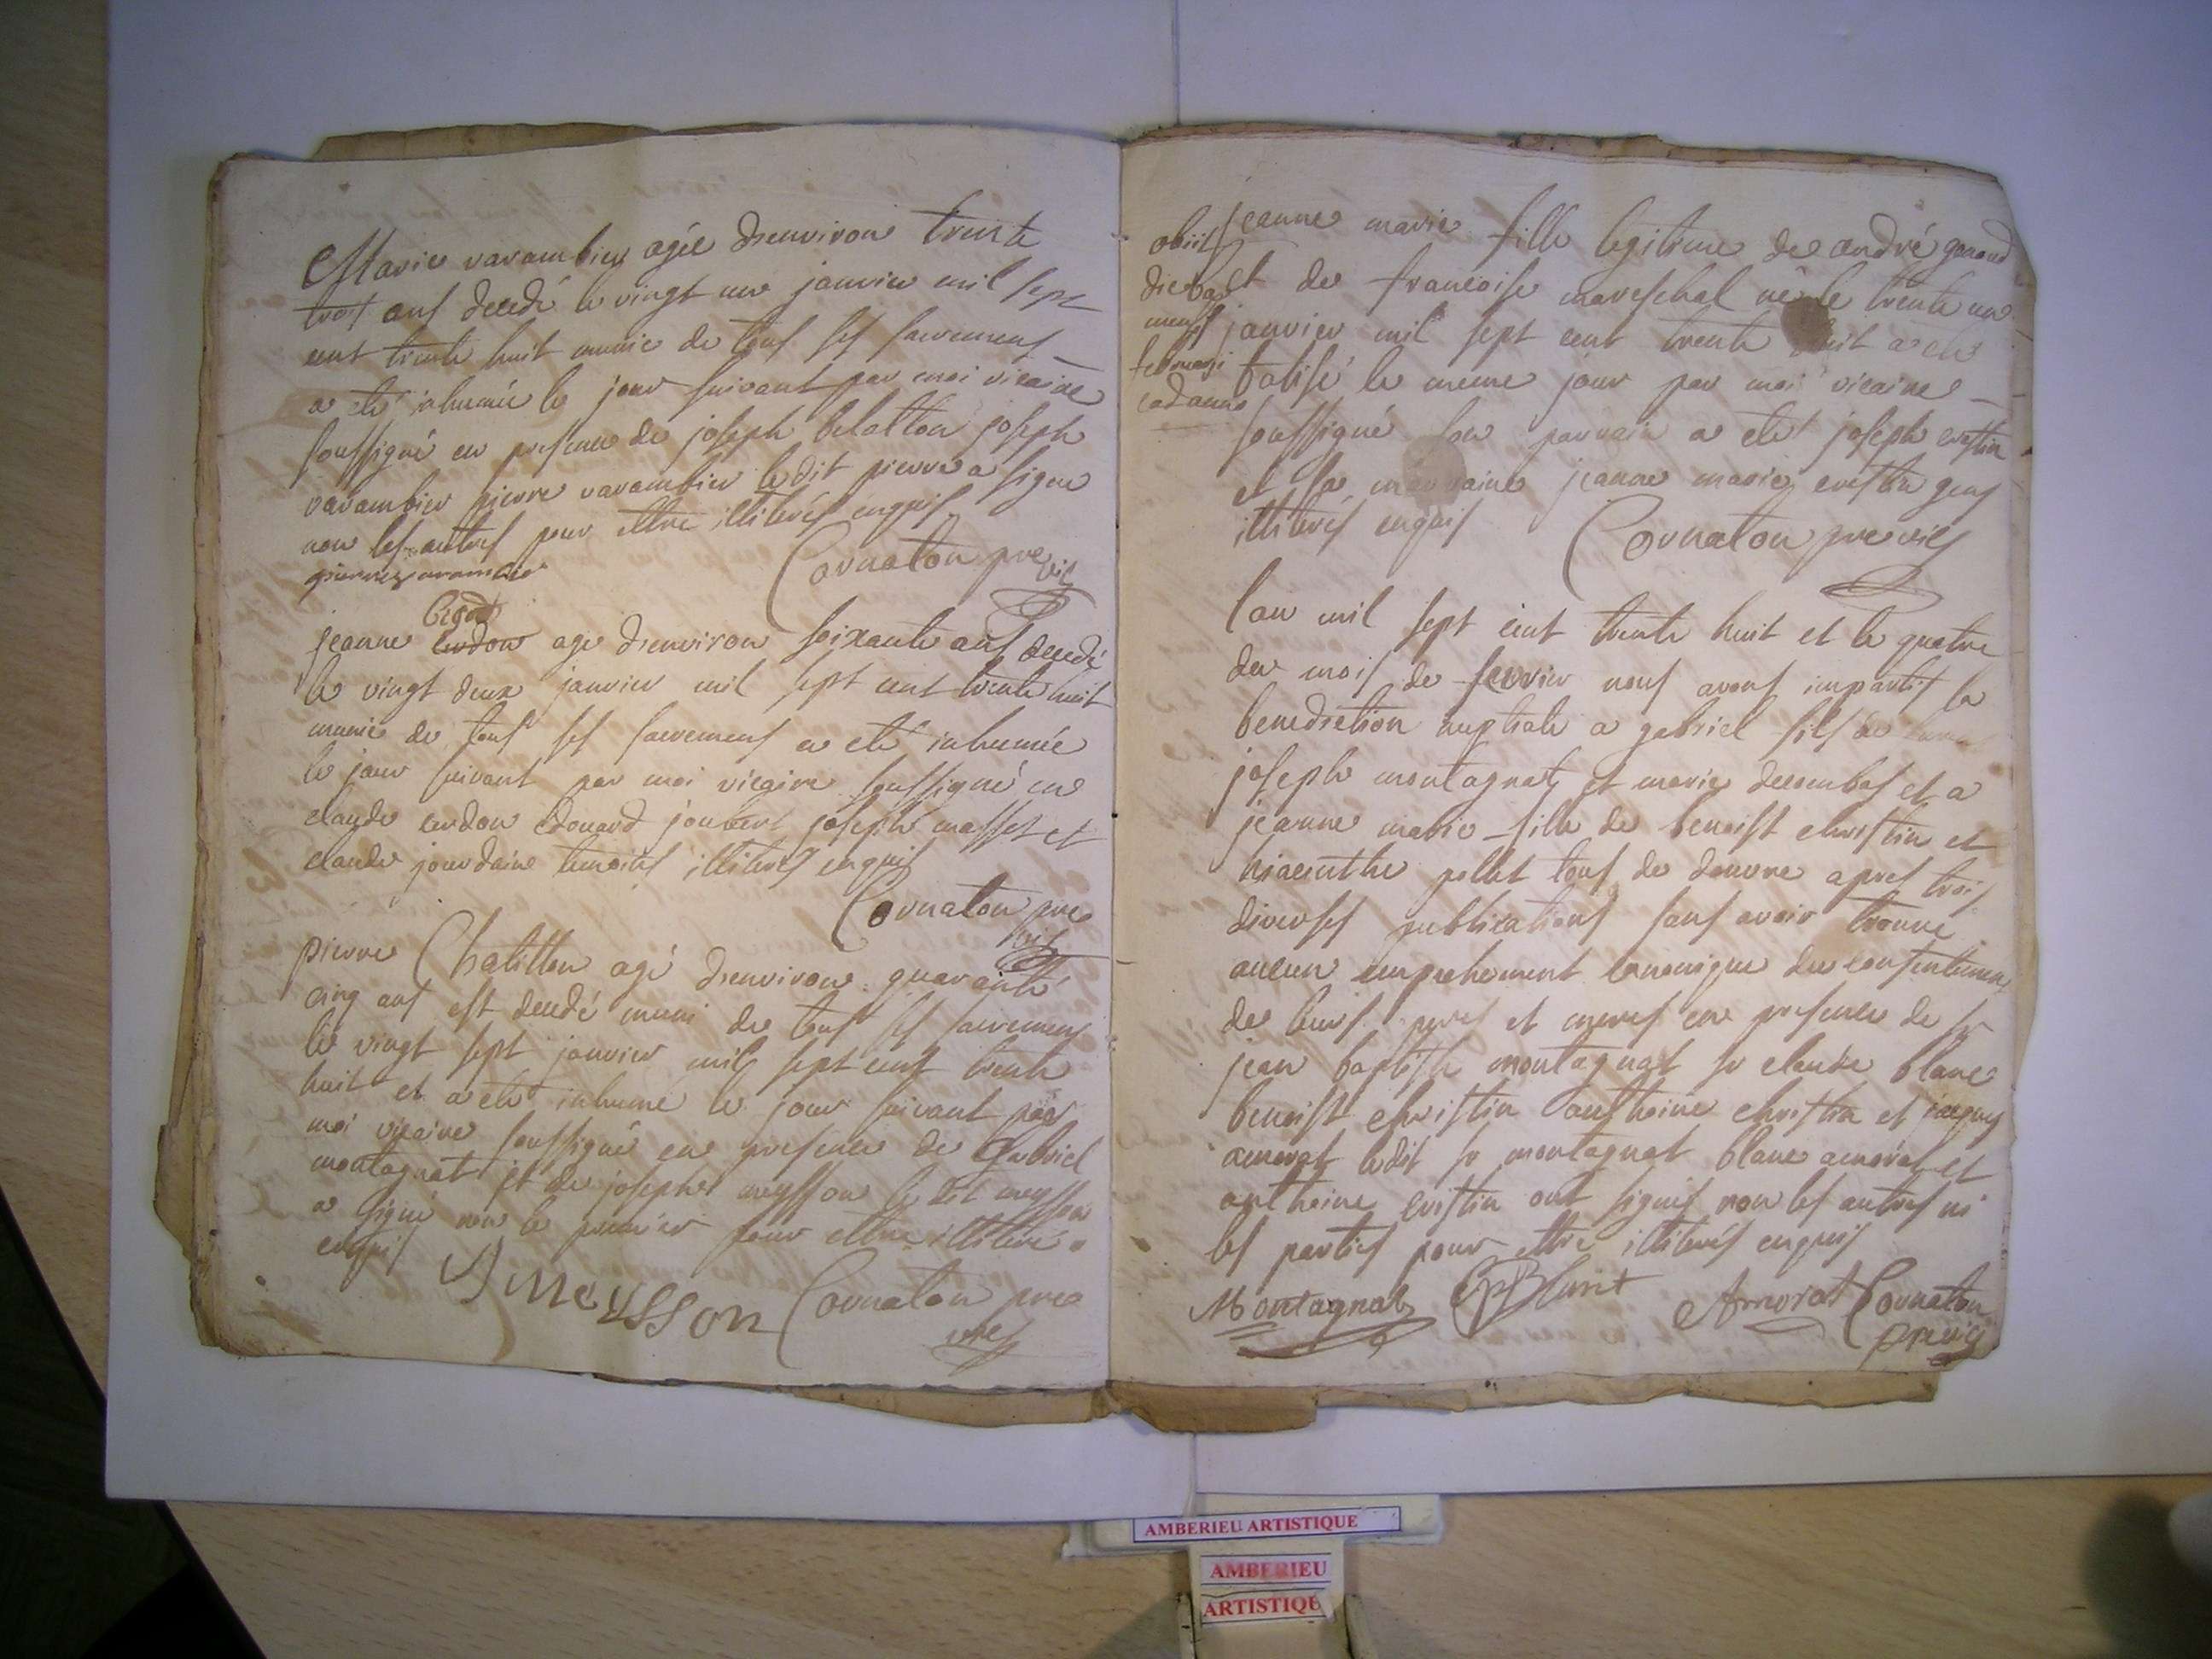 Marie varambier agée d'environ trente
trois ans decedé le vingt un janvier mil sept
cent trente huit munie de tous ses sacremens
a eté inhumée le jour suivant par moi vicaire
soussigné en presence de joseph belatton joseph
varambier pierre varambier ledit pierre a signé
non les autres pour ettre illiterés enquis
pierre varambier Cornaton pre vic
bezod
jeanne cudon age d'environ soixante ans decedé
le vingt deux janvier mil sept cent trente huit
munie de tous ses sacremens a eté inhumée
le jour suivant par moi vicaire soussigné en
claude cudon edouard joubert joseph masset et
claude jourdain temoins illiterés enquis
Cornaton pre
vic
pierre Chatillon agé d'environ quarante
cinq ans est decedé muni de tous ses sacremens
le vingt sept janvier mil sept cent trente
huit et a eté inhumé le jour suivant par
moi vicaire soussigné en presence de gabriel
montagnat et de joseph meysson le dit meysson
a signé non le premier pour ettre illiteré
enquis
J Meysson Cornaton pre
vic
obiit
die
mensis
februarji
eod anno
jeanne marie fille legitime de andré garaud
et de francoise mareschal né le trente un
janvier mil sept cent trente huit a eté
batisé le meme jour par moi vicaire
soussigné son parrain a eté joseph cristin
et sa marraine jeanne marie cristin gens
illiterés enquis Cornaton pre vic
l'an mil sept cent trente huit et le quatre
du mois de fevrier nous avons impartis la
benediction nuptiale a gabriel fils de
joseph montagnat et marie decombas et a
jeanne marie fille de benoist christin et
hiacinthe pollet tous de douvre apres trois
diverses publications sans avoir trouvé
aucun empechement canonique du consentement
de leurs peres et meres en presence de sr
jean baptiste montagnat sr claude blanc
benoist christin anthoine christin et jacques
amorat ledit sr montagnat blanc amorat et
anthoine cristin ont signés non les autres ni
les parties pour ettre illiterés enquis
Montagnat Blanc Amorat Cornaton
pre vic
AMBERIEU ARTISTIQUE
AMBERIEU
ARTISTIQUE